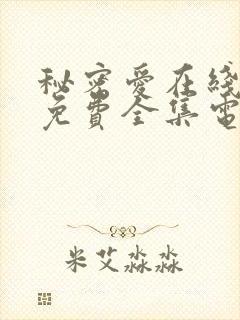 秘密愛在綫
免費全集電
米艾淼淼